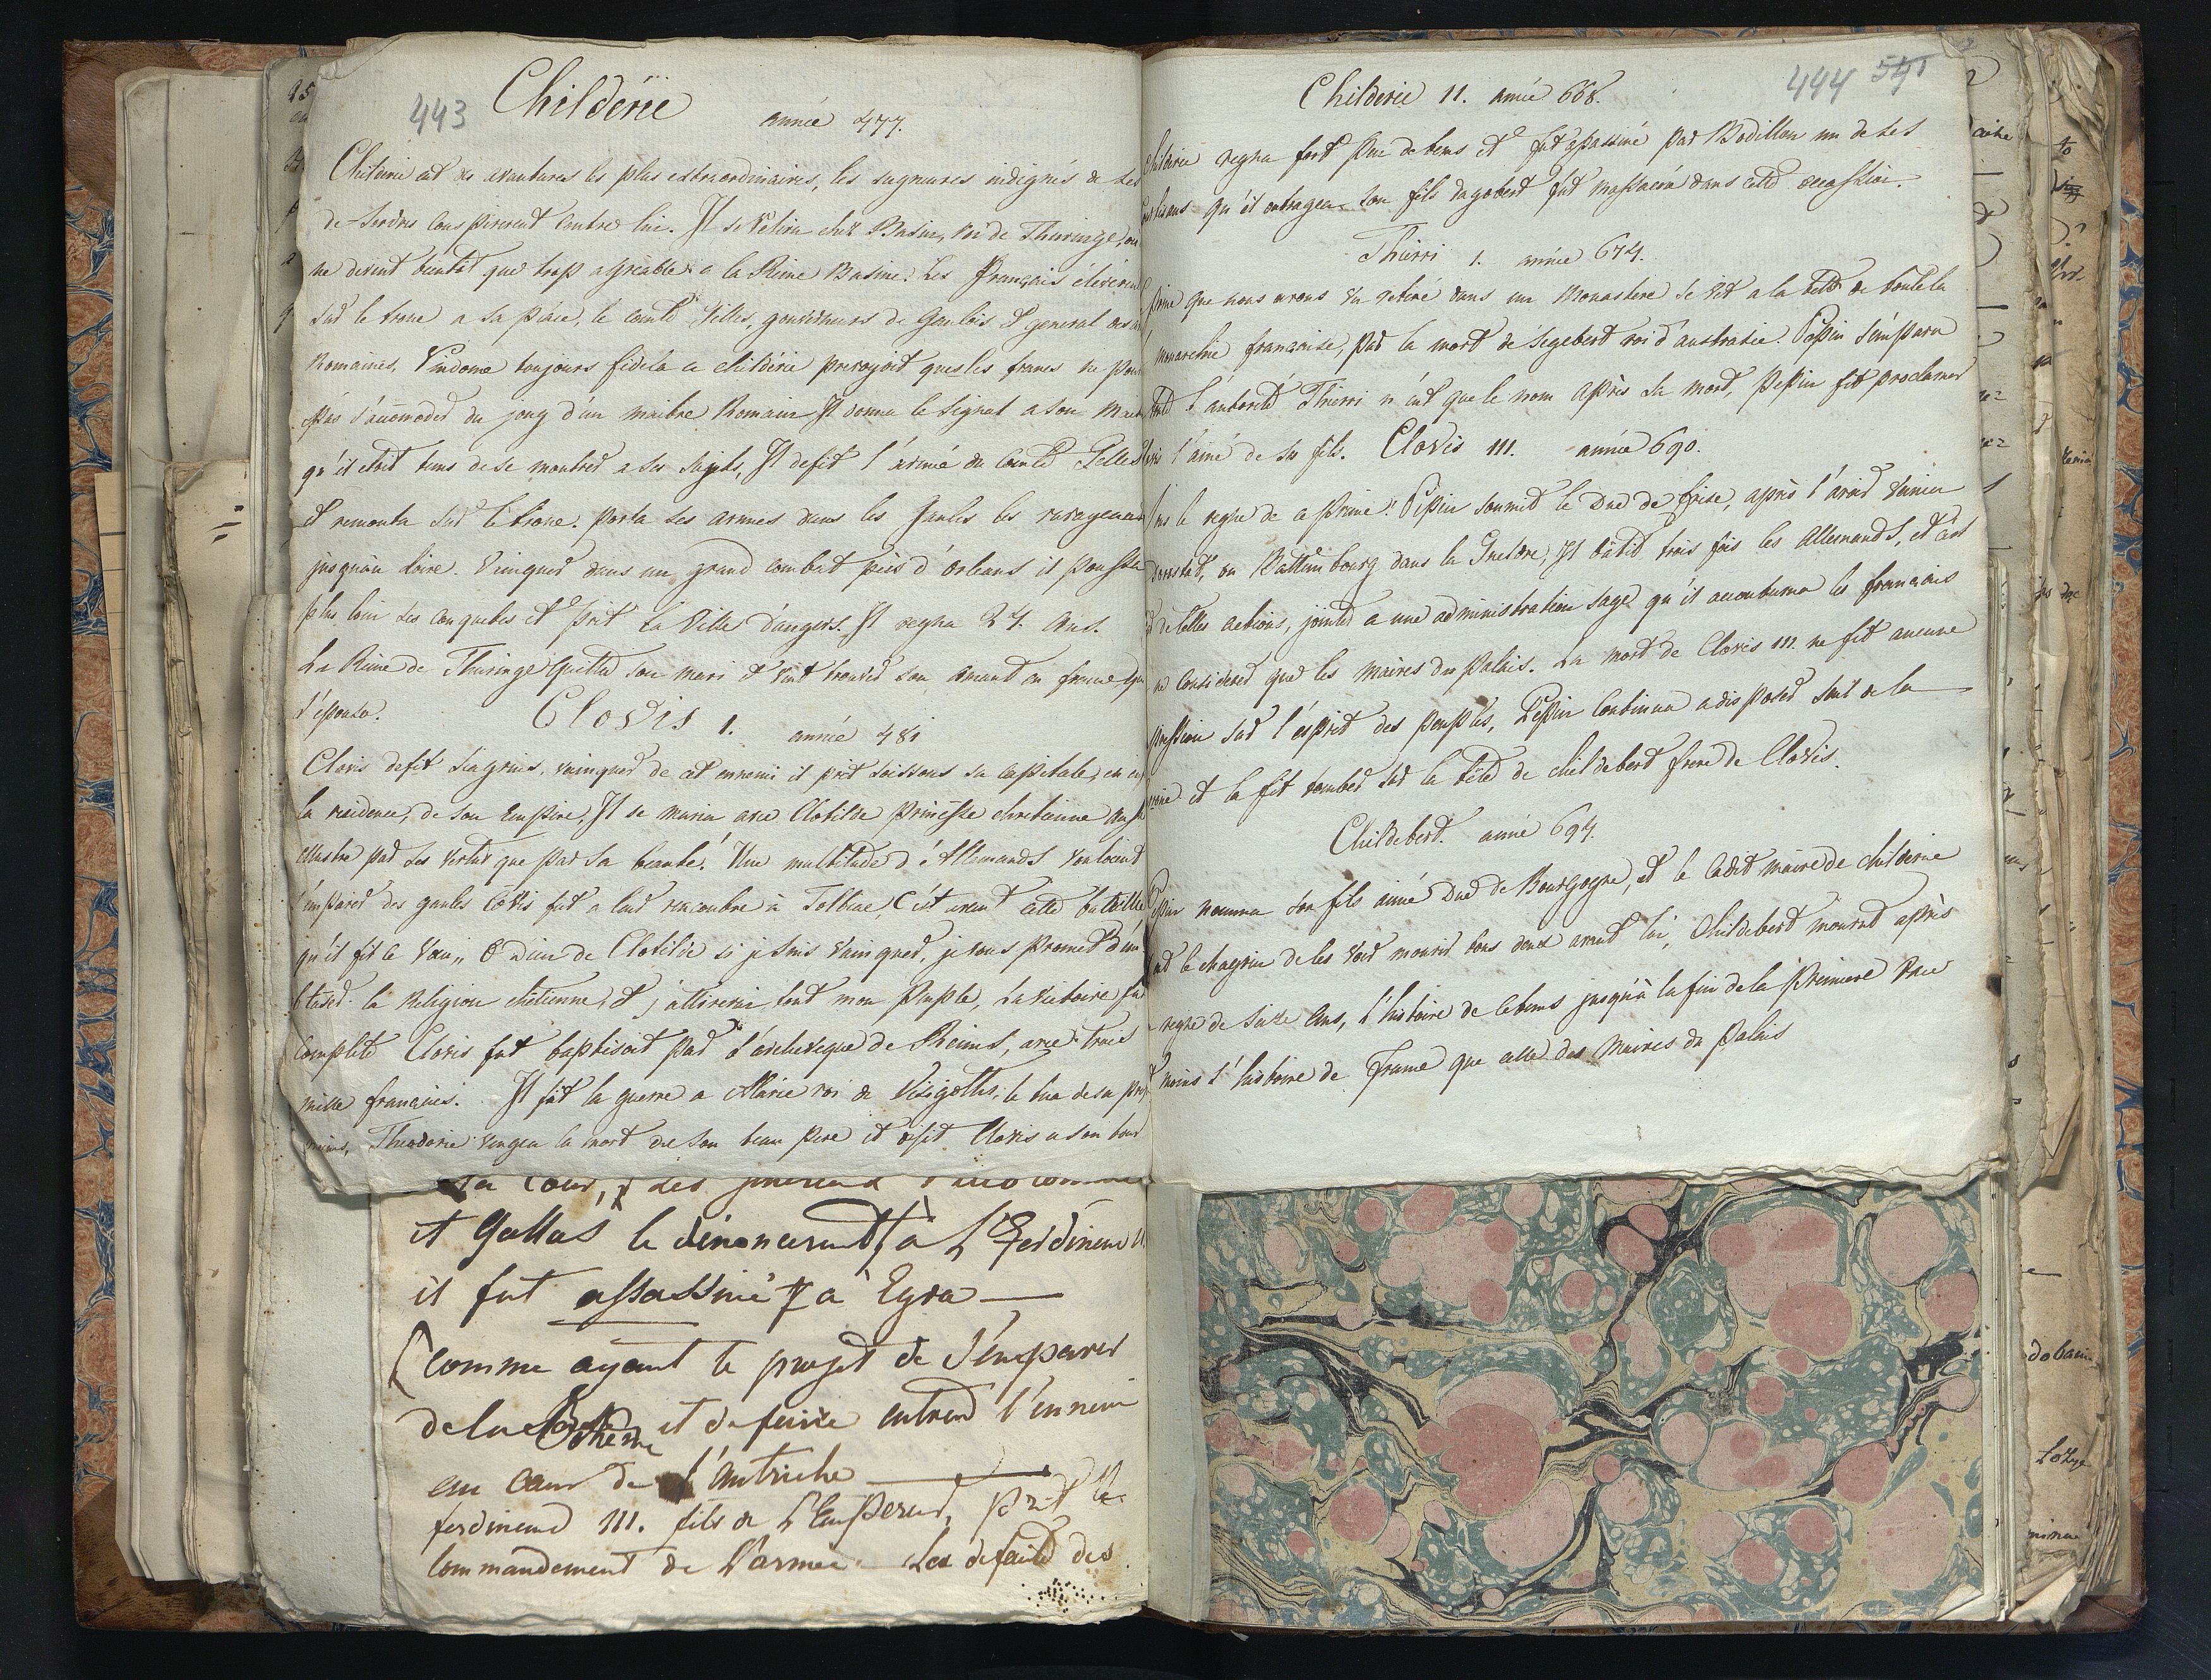 443
Childéric
année 477.
Childeric eut des avantures les plus extraordinaires, les seigneures indignés de ses
de-sordres conspirerent contre lui. Il se retira chez Basin, roi de Thuringe, ou
ne devint bientôt que trop agreable a la Reine Basine. Les Français élévérent
sur le trone a sa place, le comte Gilles, gouverneurs de Gaulois et general des
Romaines, Vindome toujours fidela a childéric prevoyoit que les francs ne
pas s'accomoder du joug d'un maitre Romain Il donna le signal a son
qu'il étoit tems de se montrer a ses sujets, Il defit l'armée du Comte Gelles
et remonta sur le trone. porta ses armes dans les Gaules les ravageant
jusqu'au Loire. Vainqueur dans un grand combat près d'orleans il poussa
plus loin ses conquetes et prit la Ville d'angers. Il regna 24 ans.
La Reine de Thuringe quitta son mari et vint trouver son amant en france
l'épousa.
Clovis 1.
année 481
Clovis defit Siagrius, vainqueur de cet ennemi il prit soissons sa capitale, en
la residence, de son Empire, Il se maria avec Clotilde princesse chretienne
illustre par ses vertus que par sa beauté. Une multitude d'Allemands vouloient
s'emparer des gaules Clovis fut a leur rencontre à Tolbiac, C'ét avant cette bataille
qu'il fit le Vœu „ O dieu de Clotilde si je suis vainqueur, je vous promet
la Religion chétienne, et j'attirerai tout mon Peuple, La victoire fu
Complete Clovis fut baptisoit par l'archeveque de Reims, avec trois
mille françaises. Il fit la guerre a Alaric roi de Visigoths, le tua de sa
mains, Theodoric vengea la mort de son beau pere et defit Clovis a son tour
444 541
Childeric 11. année 668.
Childeric regna fort peu de tems et fut assassiné par Bodillon un de ses
qu'il outragea son fils dagobert fut massacré dans cette occassion.
Thierri 1. année 674.
que nous avons vu retiré dans un Monastere se vit a la téte de toute la
monarchie françoise, par la mort de Segebert roi d'austrasie. Pepin s'empara
l'autorité Thierri n'eut que le nom après sa mort, Pepin fit proclamer
l'ainé de ses fils. Clovis 111. année 690.
le regne de ce prince Pepin soumit le Duc de Frise, après l'avoir vaincu
ou Battembourg dans la Gueldre, Il batit trois fois les Allemands, et c'est
de telles actions, jointes a une administration sage qu'il accoutuma les françaies
ne considerer que les maires du Palais. La mort de Clovis 111. ne fit aucune
sur l'ésprit des peuples, Pepin continua a disposer seul de la
et la fit tomber sur la téte de childebert frere de Clovis.
Childebert. année 694.
Pepin nomma son fils ainé Duc de Bourgogne, et le Cadet maire de childeric
le chagrin de les voir mourir tous deux avant lui, Childebert mourut après
regne de seize ans, L'histoire de ce tems jusqu'à la fin de la Premiere race
moins l'histoire de France que celle des Maires du Palais
et Gallas le dénoncerent, à L'Ferdinend
il fut assassiné à Egra —
(comme ayant le projet de s'emparer
de la Boheme et de faire entrer l'ennemi
au cœur de l'Autriche —
ferdinend 111. fils de L'Empereur, prit le
Commandement de L'armée — La defaite des